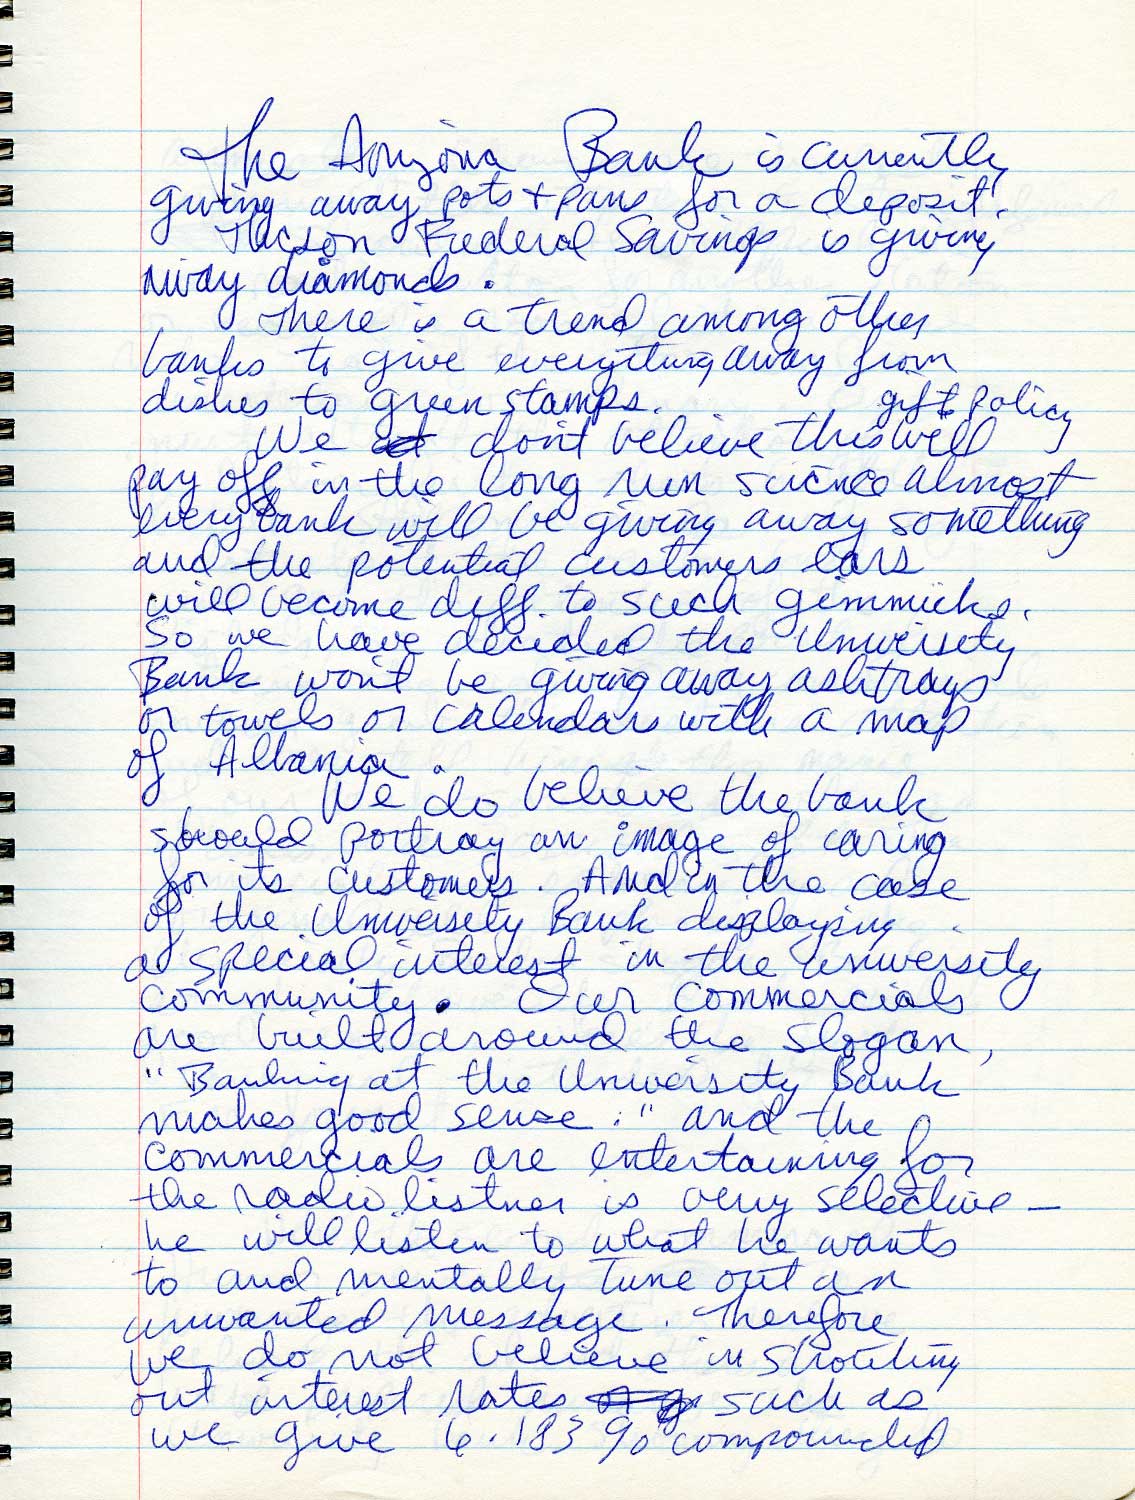 The Arizona Bank is currently
giving away pots + pans for a deposit.
Tucson Federal Savings is giving
away diamonds.
There is a trend among other
banks to give everything away from
dishes to green stamps.
gift policy
We don't believe this will
pay off in the long run science almost
every bank will be giving away something
and the potential customers ears
will become deff. to such gimmicks.
So we have decided the University
Bank won't be giving away ashtrays
or towels or calendars with a map
of Albania.
We do believe the bank
should portray an image of caring
for its customers. And in the case
of the University Bank displaying
a special interest in the University
community. Our commercials
are built around the slogan,
"Banking at the University Bank
makes good sense." and the
commercials are entertaining for
the radio listner is very selective –
he will listen to what he wants
to and mentally tune out an
unwanted message. Therefore
we do not believe in shouting
out interest rates such as
we give 6.183 % compounded